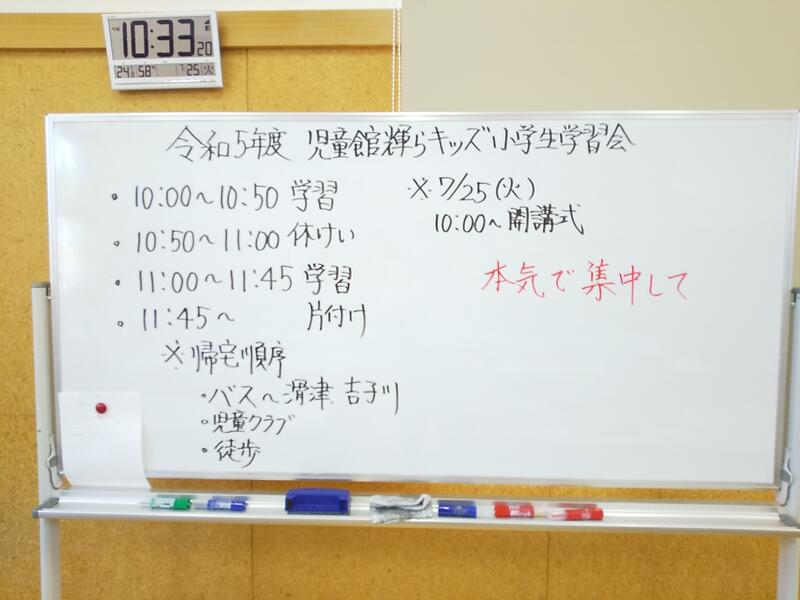 10:33 20
24.5 58% 7/25 火
令和5年度 児童館輝らキッズ小学生学習会
・10:00〜10:50 学習
・10:50〜11:00 休けい
・11:00〜11:45 学習
・11:45〜 片付け
※帰宅順序
・バス〜滑津、吉子川
・児童クラブ
・徒歩
※7/25(火)
10:00〜開講式
本気で集中して